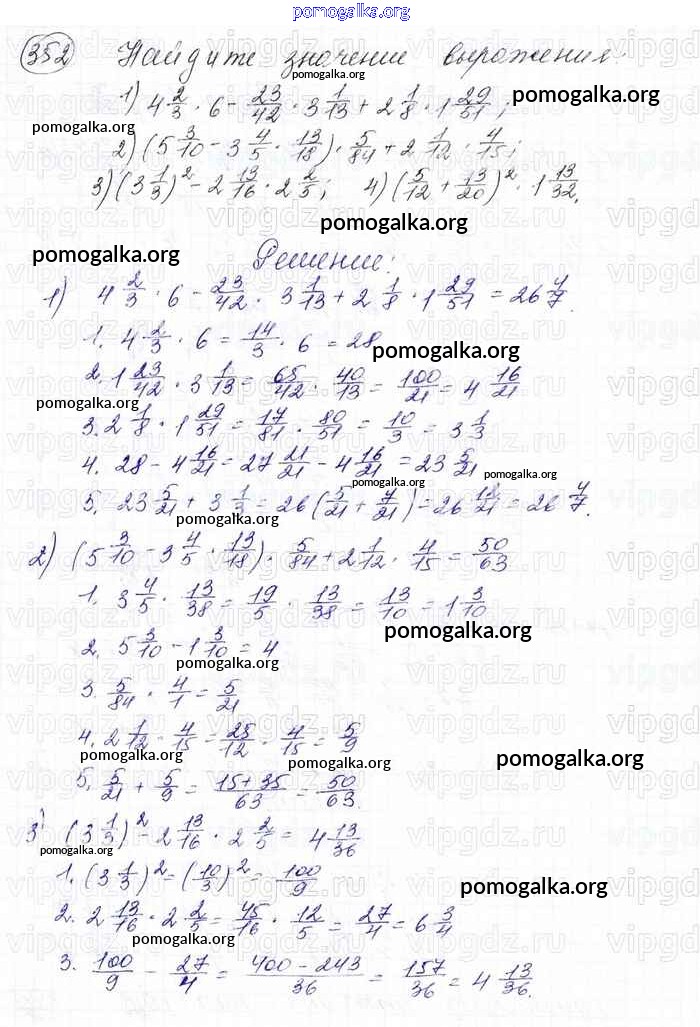 pomogalka.org
352 Найдите значение выражения:
1) 4 2/3 · 6 − 23/42 · 3 1/13 + 2 1/8 · 1 29/51;
pomogalka.org
pomogalka.org
pomogalka.org
2) (5 3/10 − 3 4/5 · 13/18) · 5/84 + 2 1/12 · 4/15;
3) (3 1/3)² − 2 13/16 · 2 2/5; 4) (5/12 + 13/20)² · 1 13/32.
pomogalka.org
pomogalka.org
Решение:
1) 4 2/3 · 6 − 23/42 · 3 1/13 + 2 1/8 · 1 29/51 = 26 4/7.
1. 4 2/3 · 6 = 14/3 · 6 = 28
pomogalka.org
2. 1 23/42 · 3 1/13 = 65/42 · 40/13 = 100/21 = 4 16/21
pomogalka.org
3. 2 1/8 · 1 29/51 = 17/81 · 80/51 = 10/3 = 3 1/3
4. 28 − 4 16/21 = 27 21/21 − 4 16/21 = 23 5/21
pomogalka.org
5. 23 5/21 + 3 1/3 = 26 (5/21 + 7/21) = 26 12/21 = 26 4/7.
pomogalka.org
2) (5 3/10 − 3 4/5 · 13/18) · 5/84 + 2 1/12 · 4/15 = 50/63
1. 3 4/5 · 13/38 = 19/5 · 13/38 = 13/10 = 1 3/10
pomogalka.org
2. 5 3/10 − 1 3/10 = 4
pomogalka.org
3. 5/84 · 4/1 = 5/21
4. 2 1/12 · 4/15 = 25/12 · 4/15 = 5/9
pomogalka.org
pomogalka.org
5. 5/21 + 5/9 = (15+35)/63 = 50/63.
3) (3 1/3)² − 2 13/16 · 2 2/5 = 4 13/36
pomogalka.org
1. (3 1/3)² = (10/3)² = 100/9
pomogalka.org
2. 2 13/16 · 2 2/5 = 45/16 · 12/5 = 27/4 = 6 3/4
pomogalka.org
3. 100/9 − 27/4 = (400 − 243)/36 = 157/36 = 4 13/36.